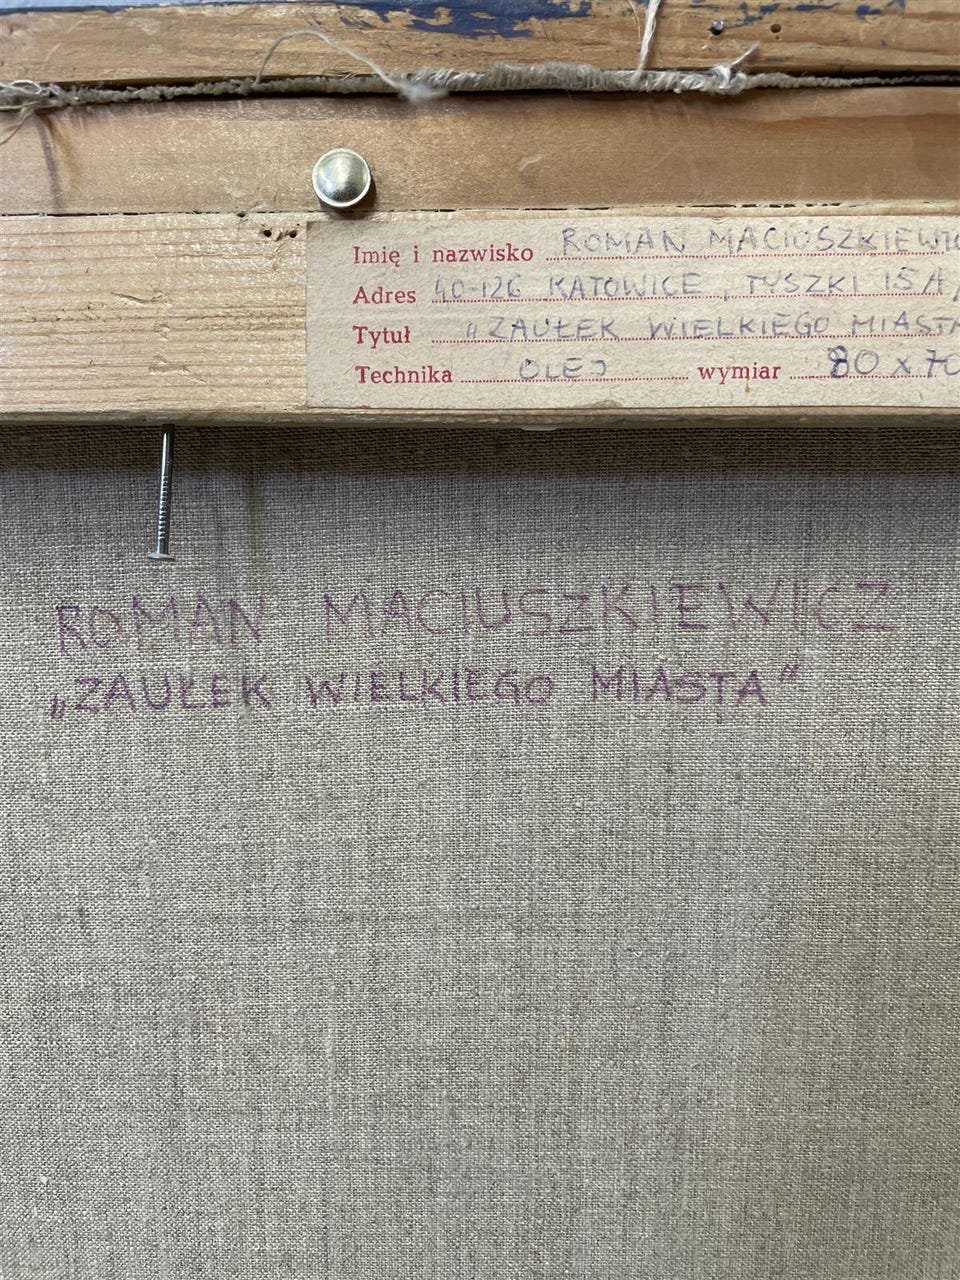 Imię i nazwisko ROMAN MACIUSZKIEWIC
Adres 40-126 KATOWICE, TYSZKI 15A/
Tytuł „ZAUŁEK WIELKIEGO MIASTA
Technika OLEJ wymiar 80 x 70
ROMAN MACIUSZKIEWICZ
„ZAUŁEK WIELKIEGO MIASTA"